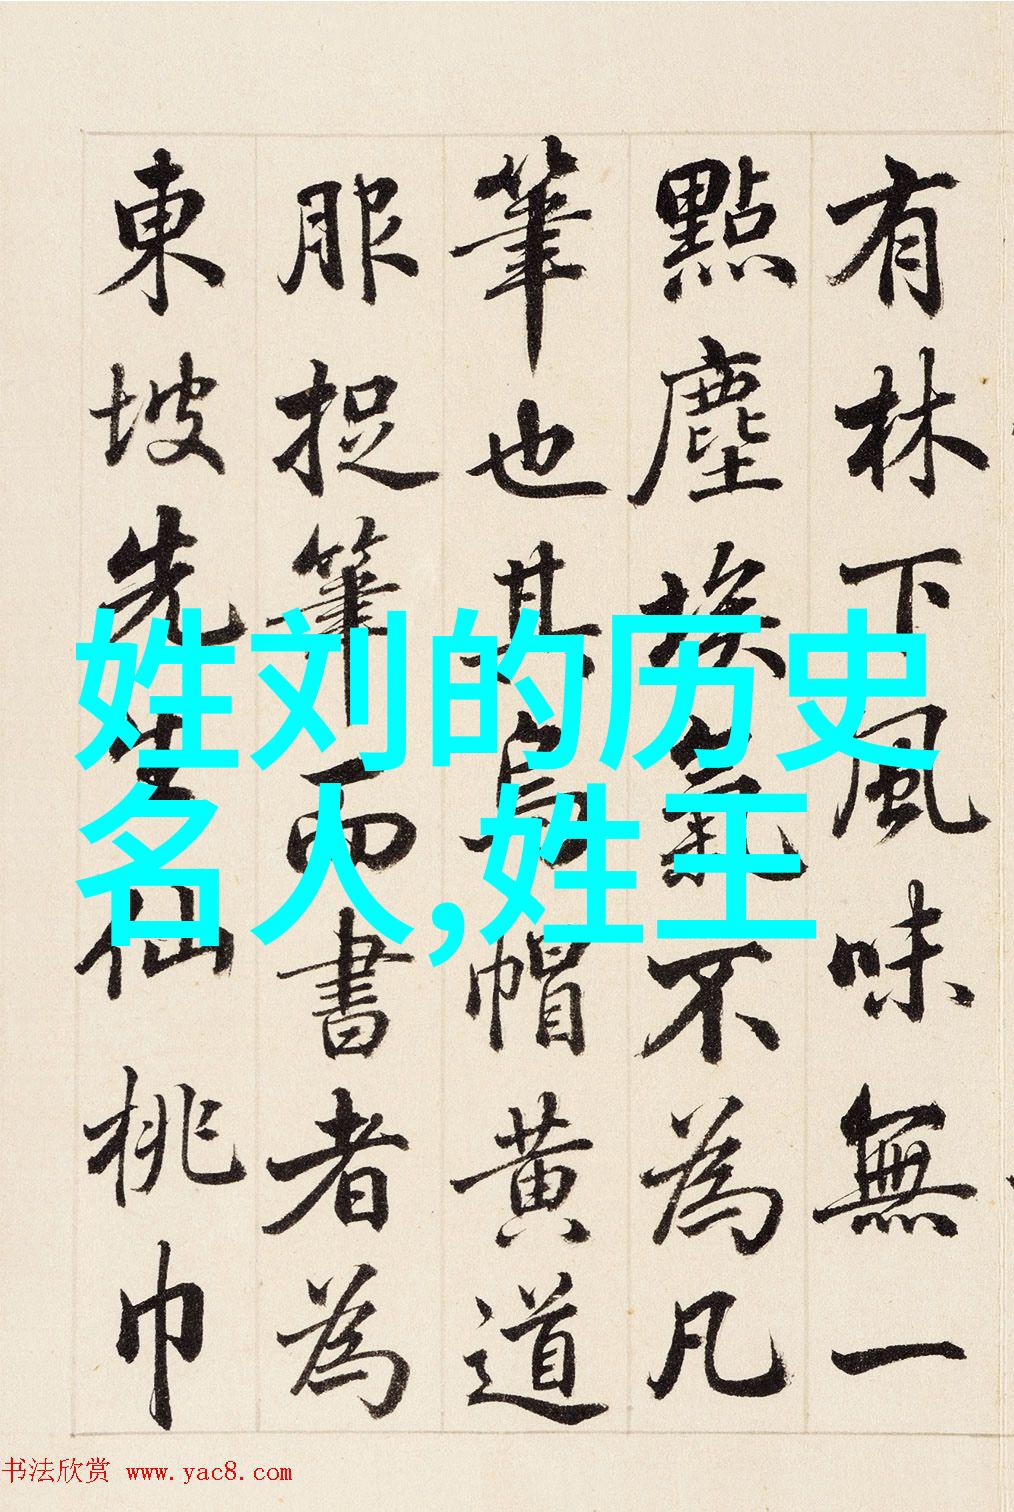 有林下風味無一
點塵埃氣不為凡
筆也其烏帽黃道
服捉筆而書者為
東坡先生仙桃巾
姓刘的历史
名人,姓王
书法欣赏 www.yac8.com